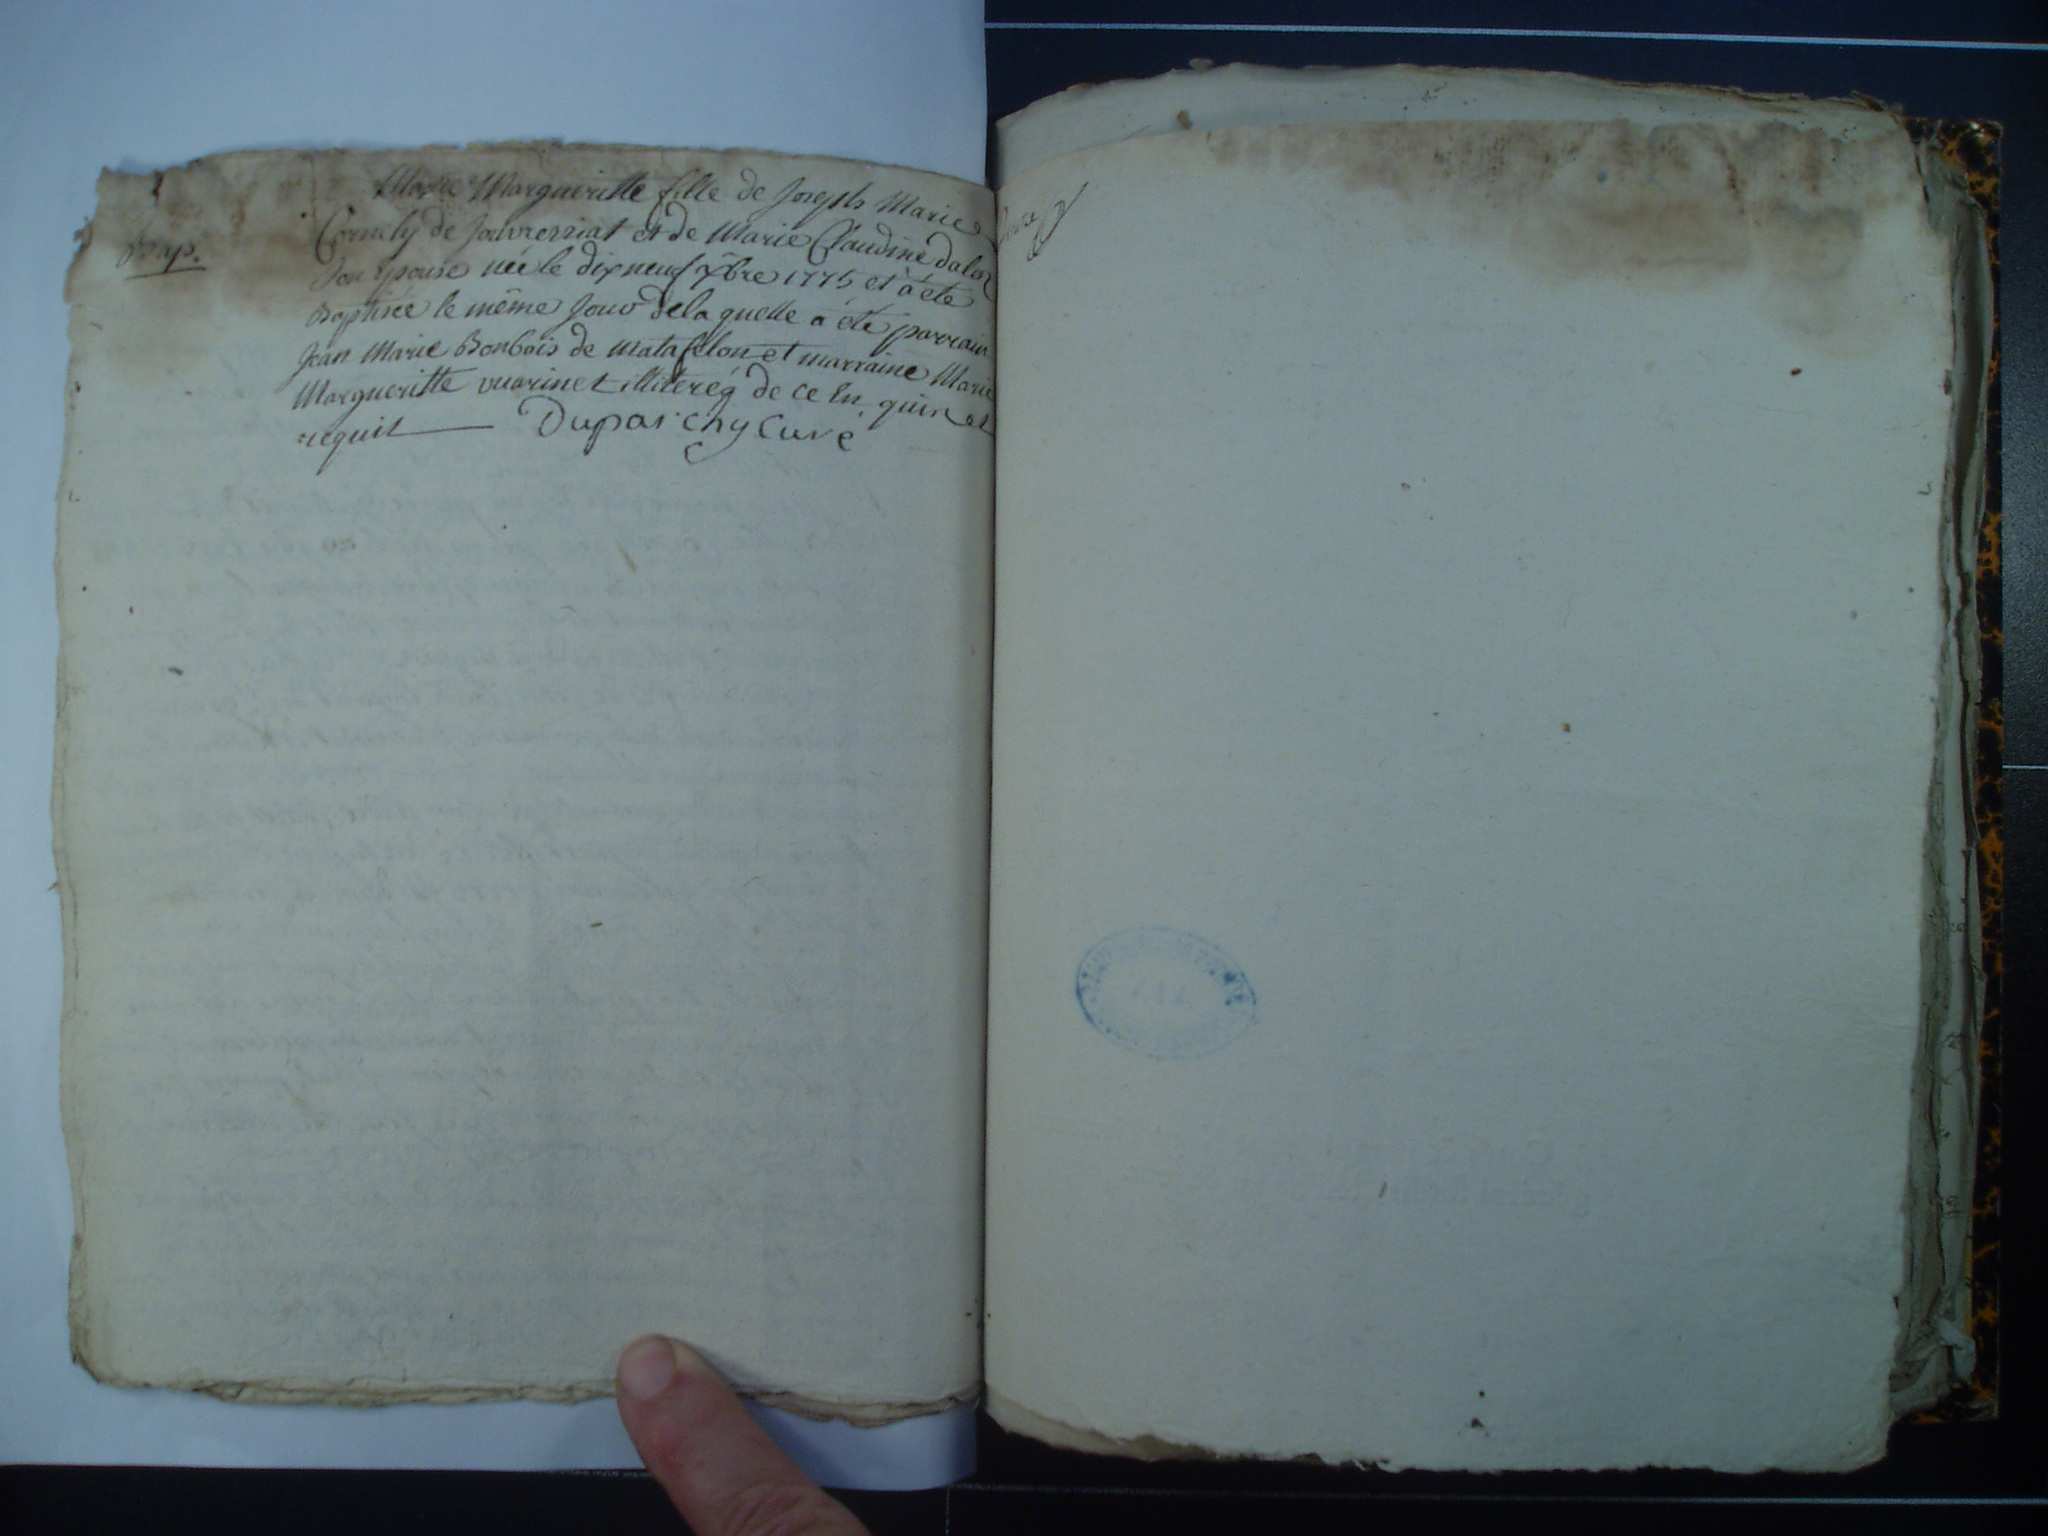 Bap.
Marie Margueritte fille de Joseph Marie
Cornely de Jouvressiat et de Marie Claudine daloz
Son epouse née le dix neuf xbre 1775 et à été
Baptisée le même Jour de laquelle a été parrain
Jean Marie Bonbois de matafelon et marraine Marie
Margueritte vuarinet illiterég de ce En. quis et
requit Duparchy Curé